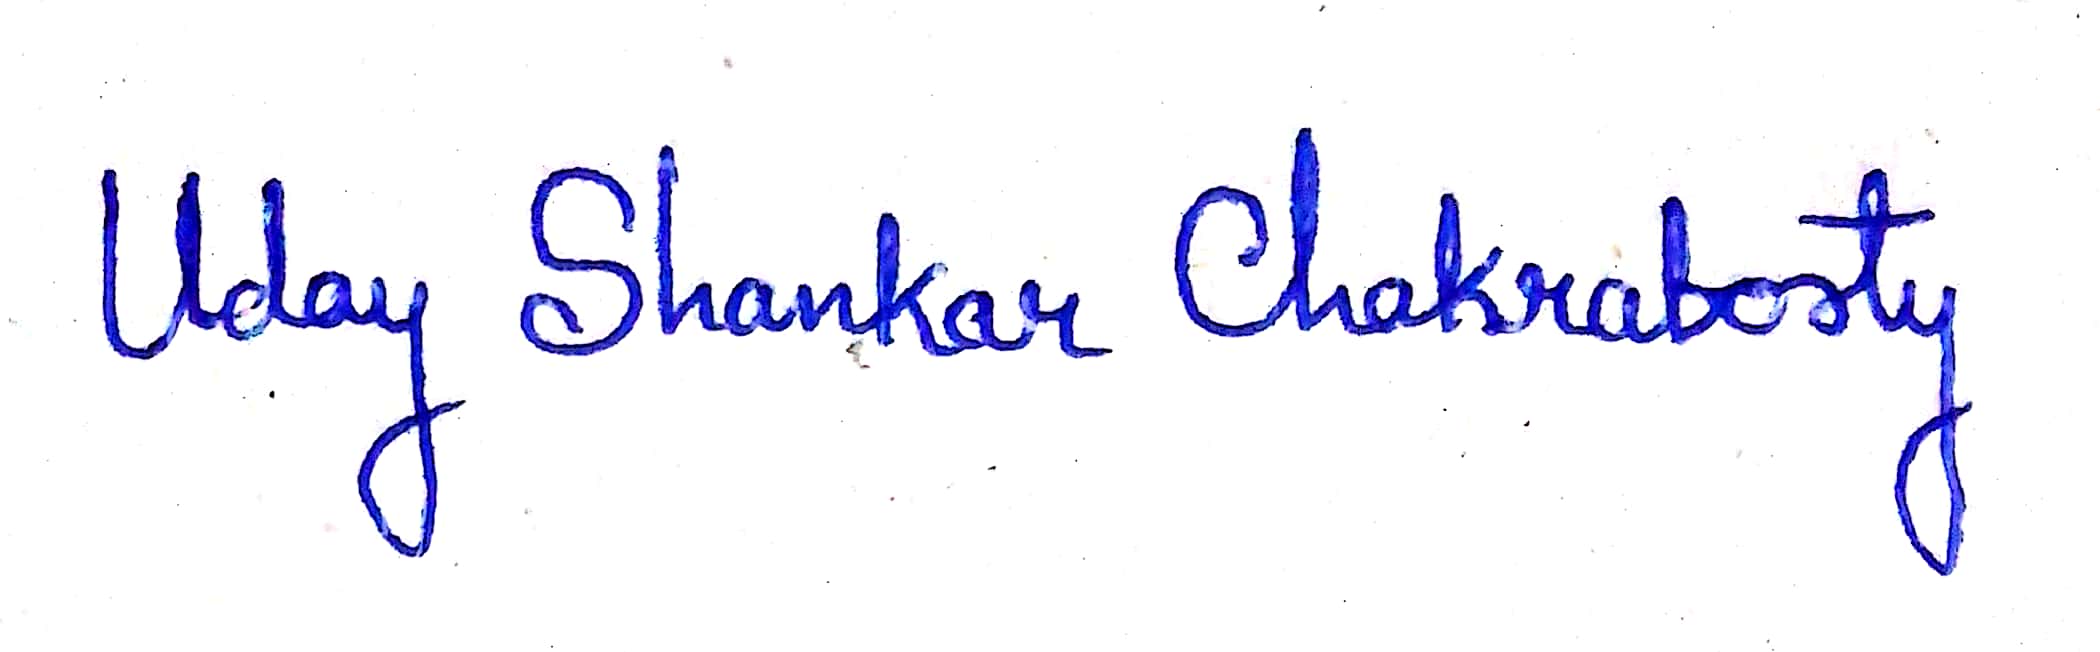 Uday Shankar Chakraborty